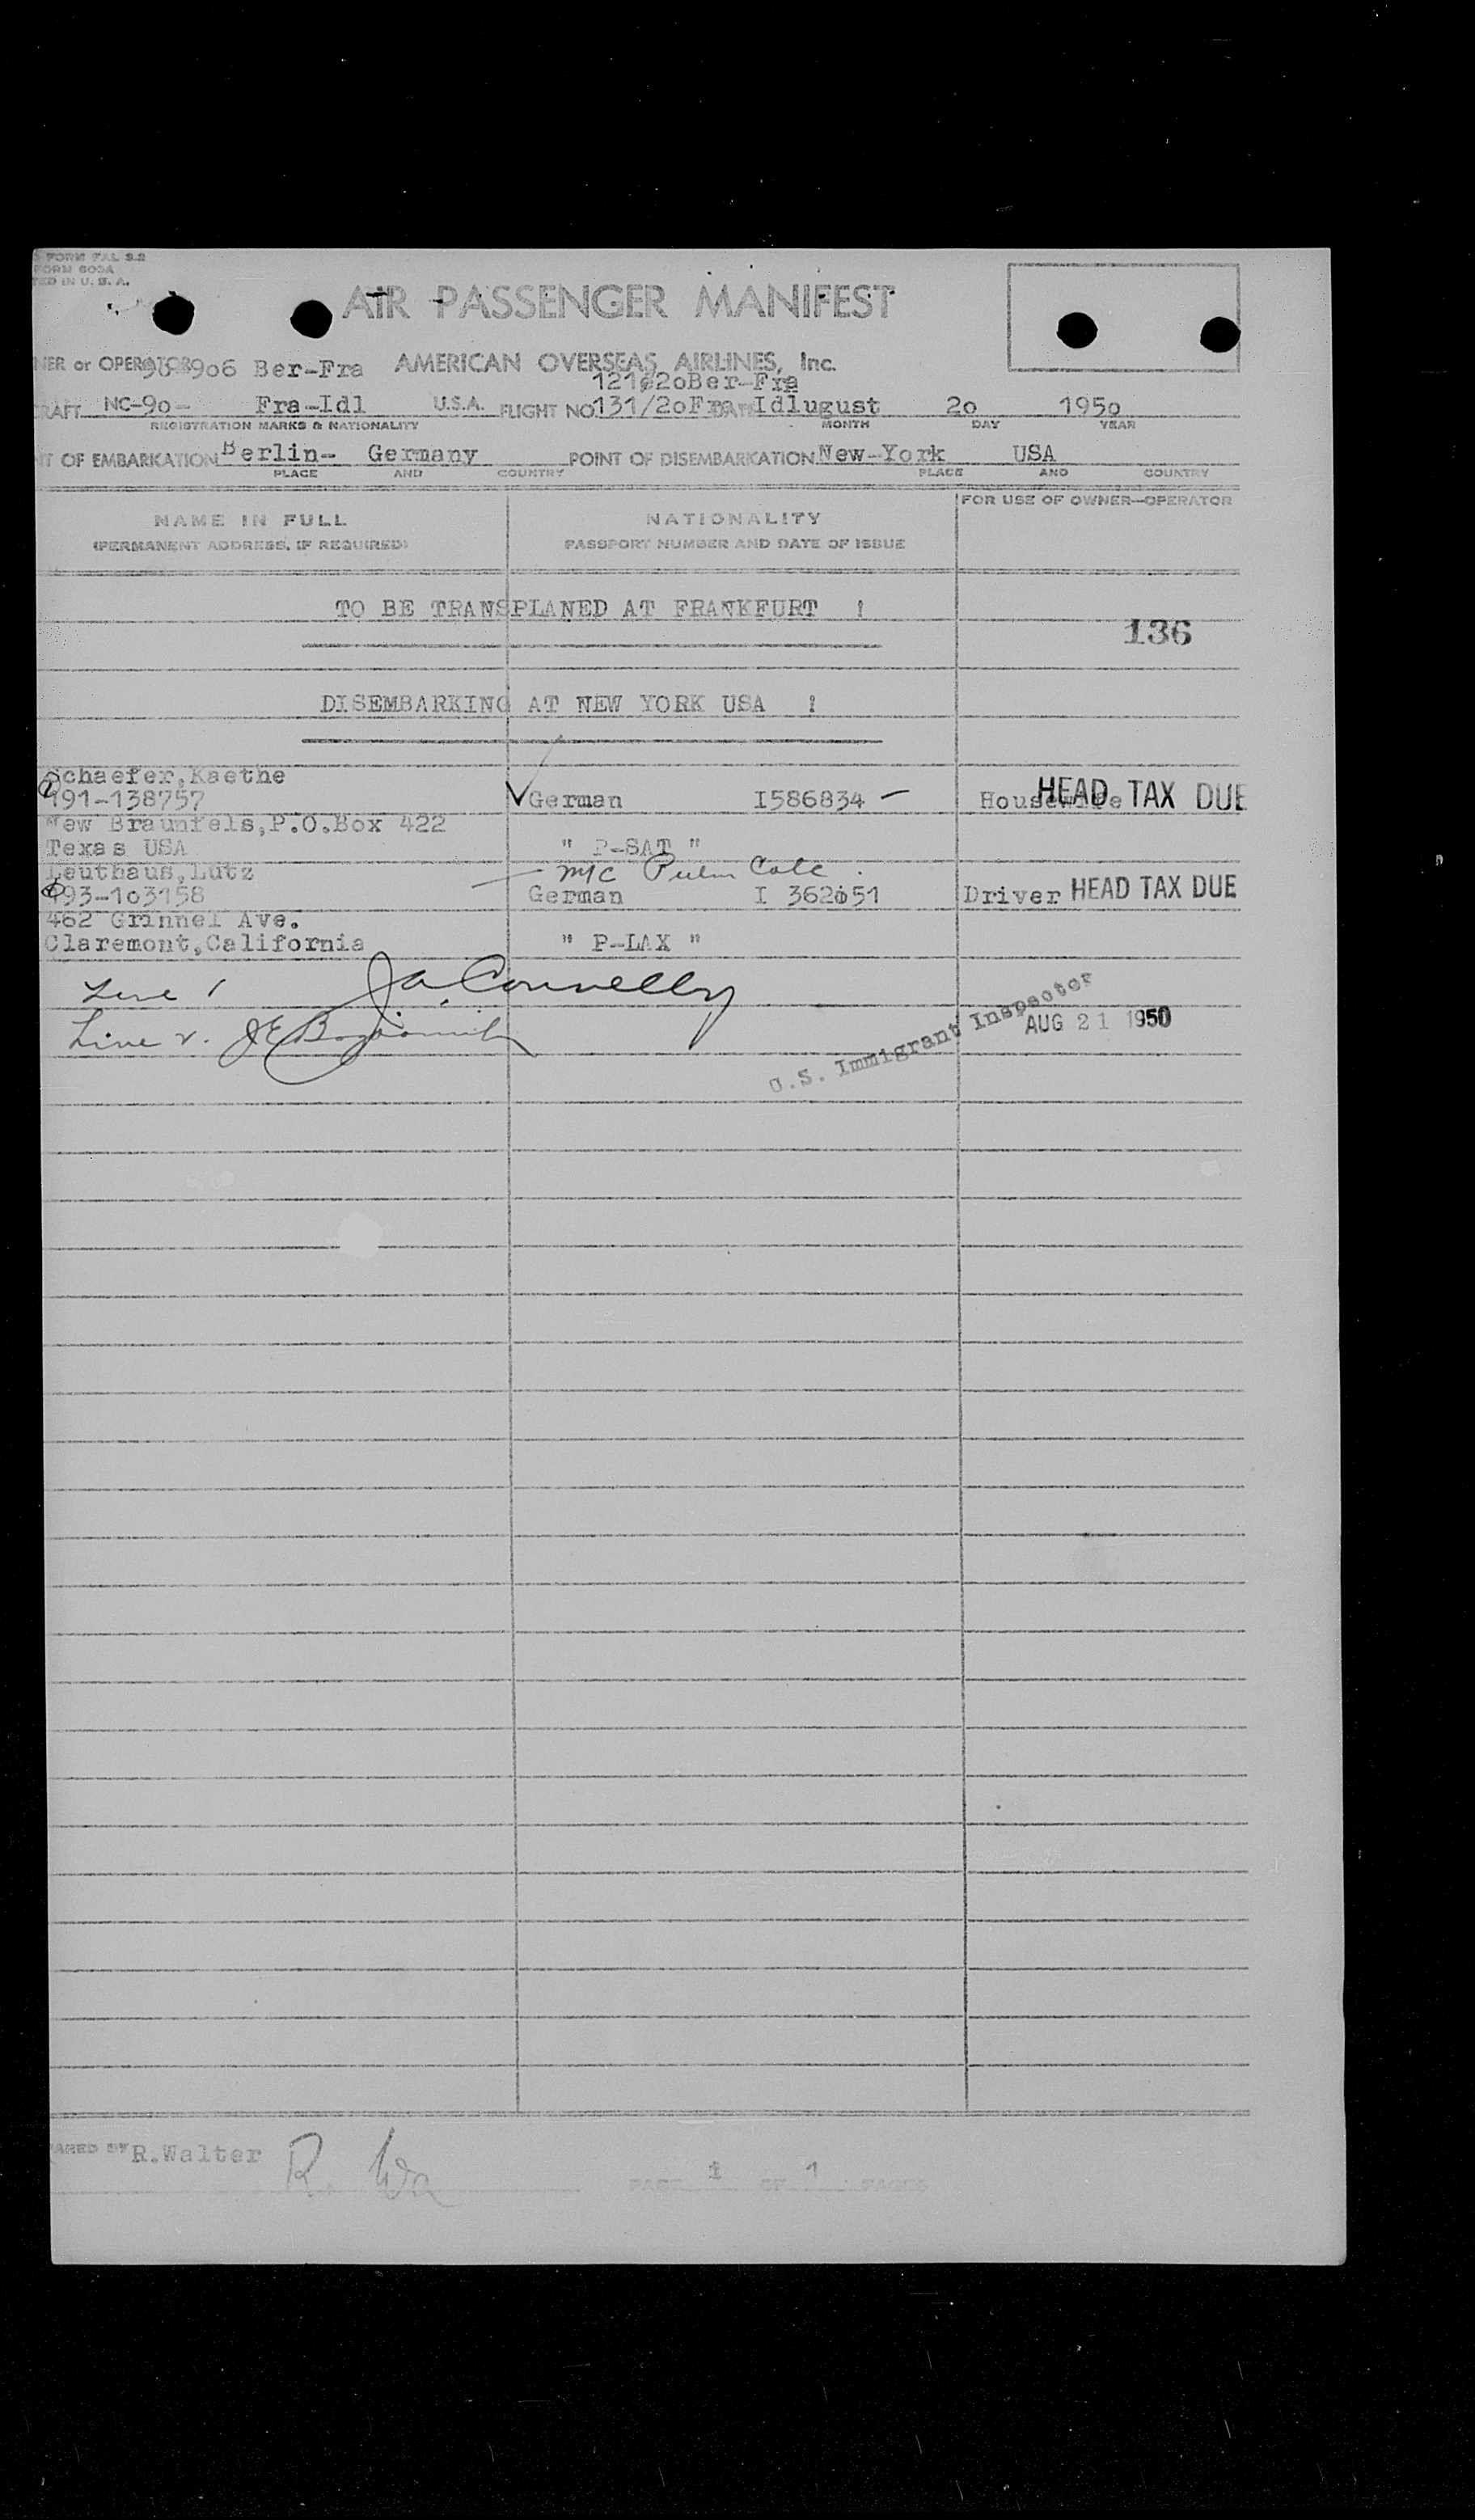 FORM FAL 3.2
FORM 600A
TED IN U. S. A.
AIR PASSENGER MANIFEST
NER or OPERATOR 906 Ber-Fra AMERICAN OVERSEAS AIRLINES, Inc.
Ber-Fra
RAFT NC-9o- Fra-Idl U.S.A. FLIGHT NO 131/2oFra-Idlugust 2o 195o
REGISTRATION MARKS & NATIONALITY MONTH DAY YEAR
T OF EMBARKATION Berlin- Germany POINT OF DISEMBARKATION New-York USA
PLACE AND COUNTRY PLACE AND COUNTRY
FOR USE OF OWNER—OPERATOR
NAME IN FULL NATIONALITY
(PERMANENT ADDRESS, IF REQUIRED) PASSPORT NUMBER AND DATE OF ISSUE
TO BE TRANSPLANED AT FRANKFURT !
136
DISEMBARKING AT NEW YORK USA !
Schaefer,Kaethe
191-138757 German I586834 Housewife HEAD TAX DUE
New Braunfels,P.O.Box 422
Texas USA " P-SAT "
Leuthaus,Lutz M/C
193-1o3158 German I 362o51 Driver HEAD TAX DUE
462 Grinnel Ave.
Claremont,California " P-LAX "
Line 1 Ja. Connelly
Line 2.
U.S. Immigrant Inspector
AUG 21 1950
ARED BY R.Walter R. Wa
PAGE 1 OF 1 PAGES